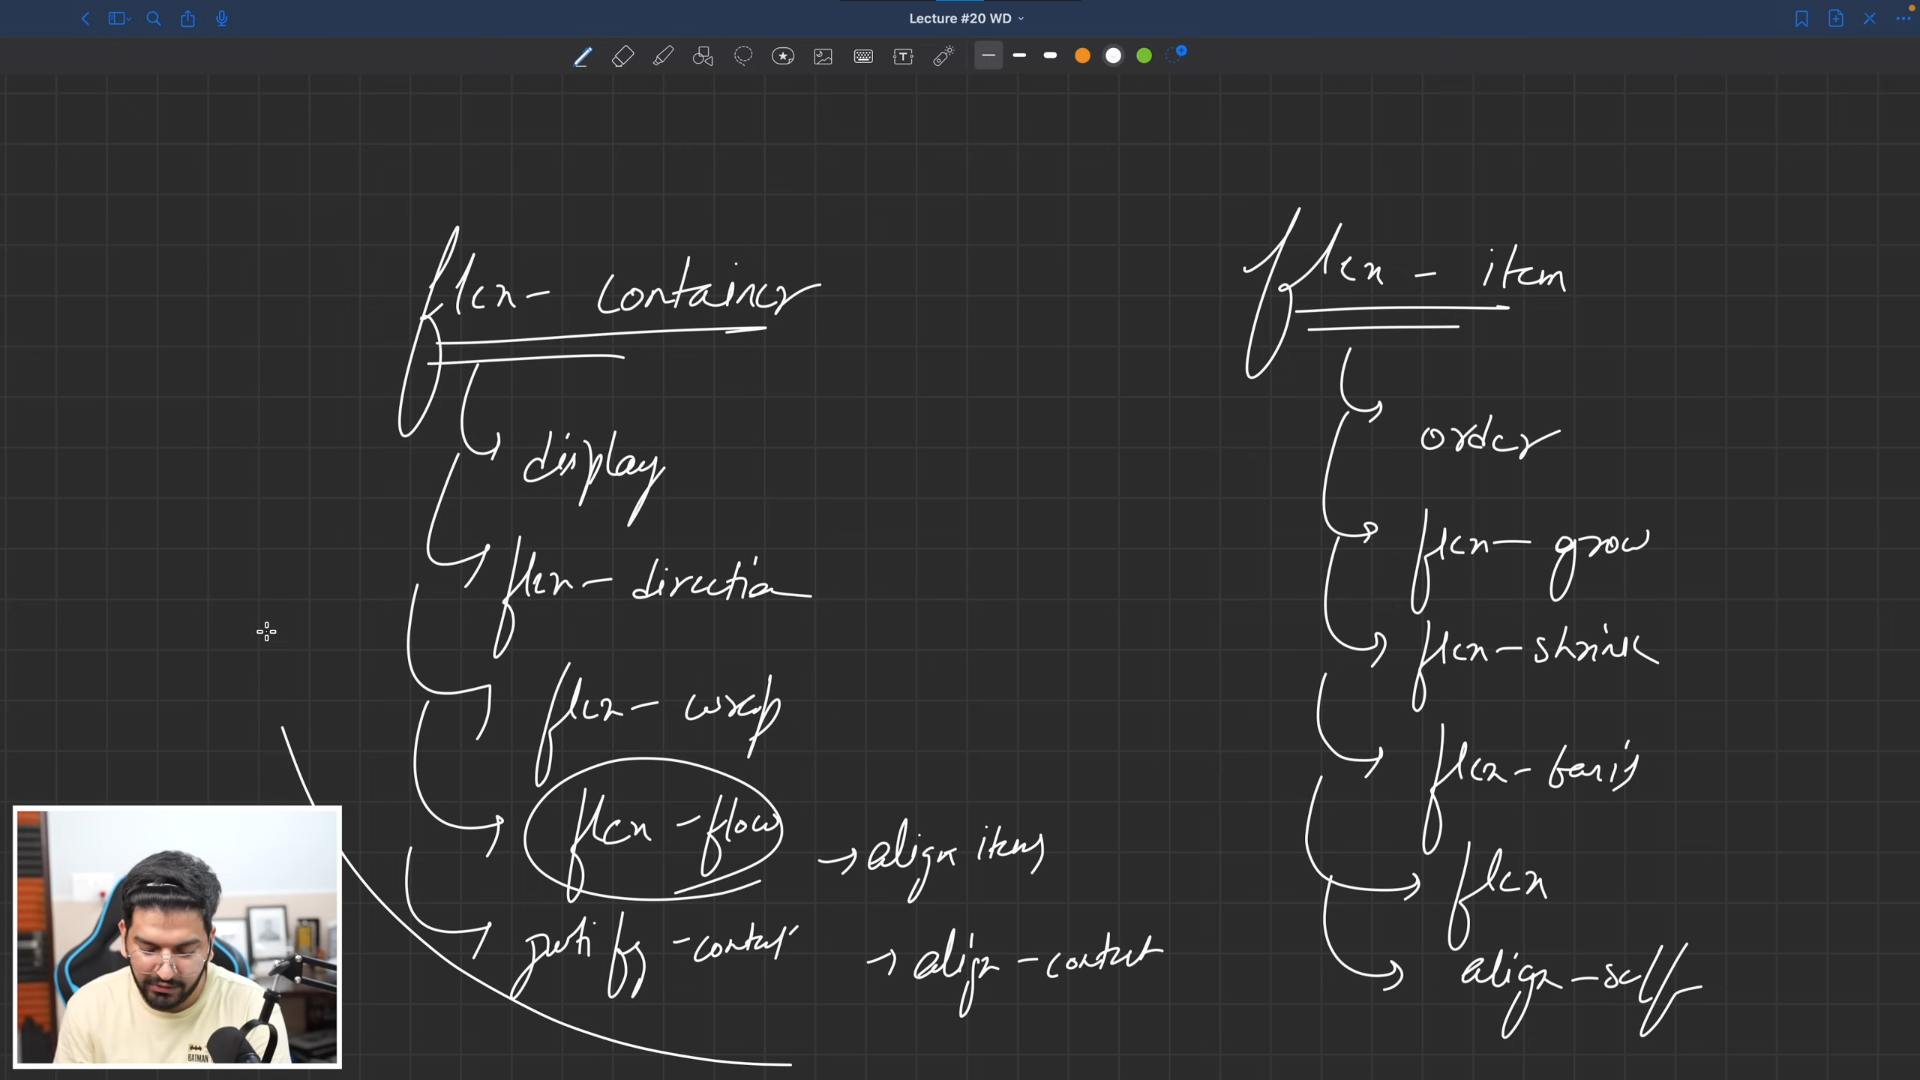 Lecture #20 WD
flex - container
display
flex - direction
flex - wrap
flex - flow
→ align items
justify - content
→ align - content
flex - item
order
flex - grow
flex - shrink
flex - basis
flex
align - self
BATMAN